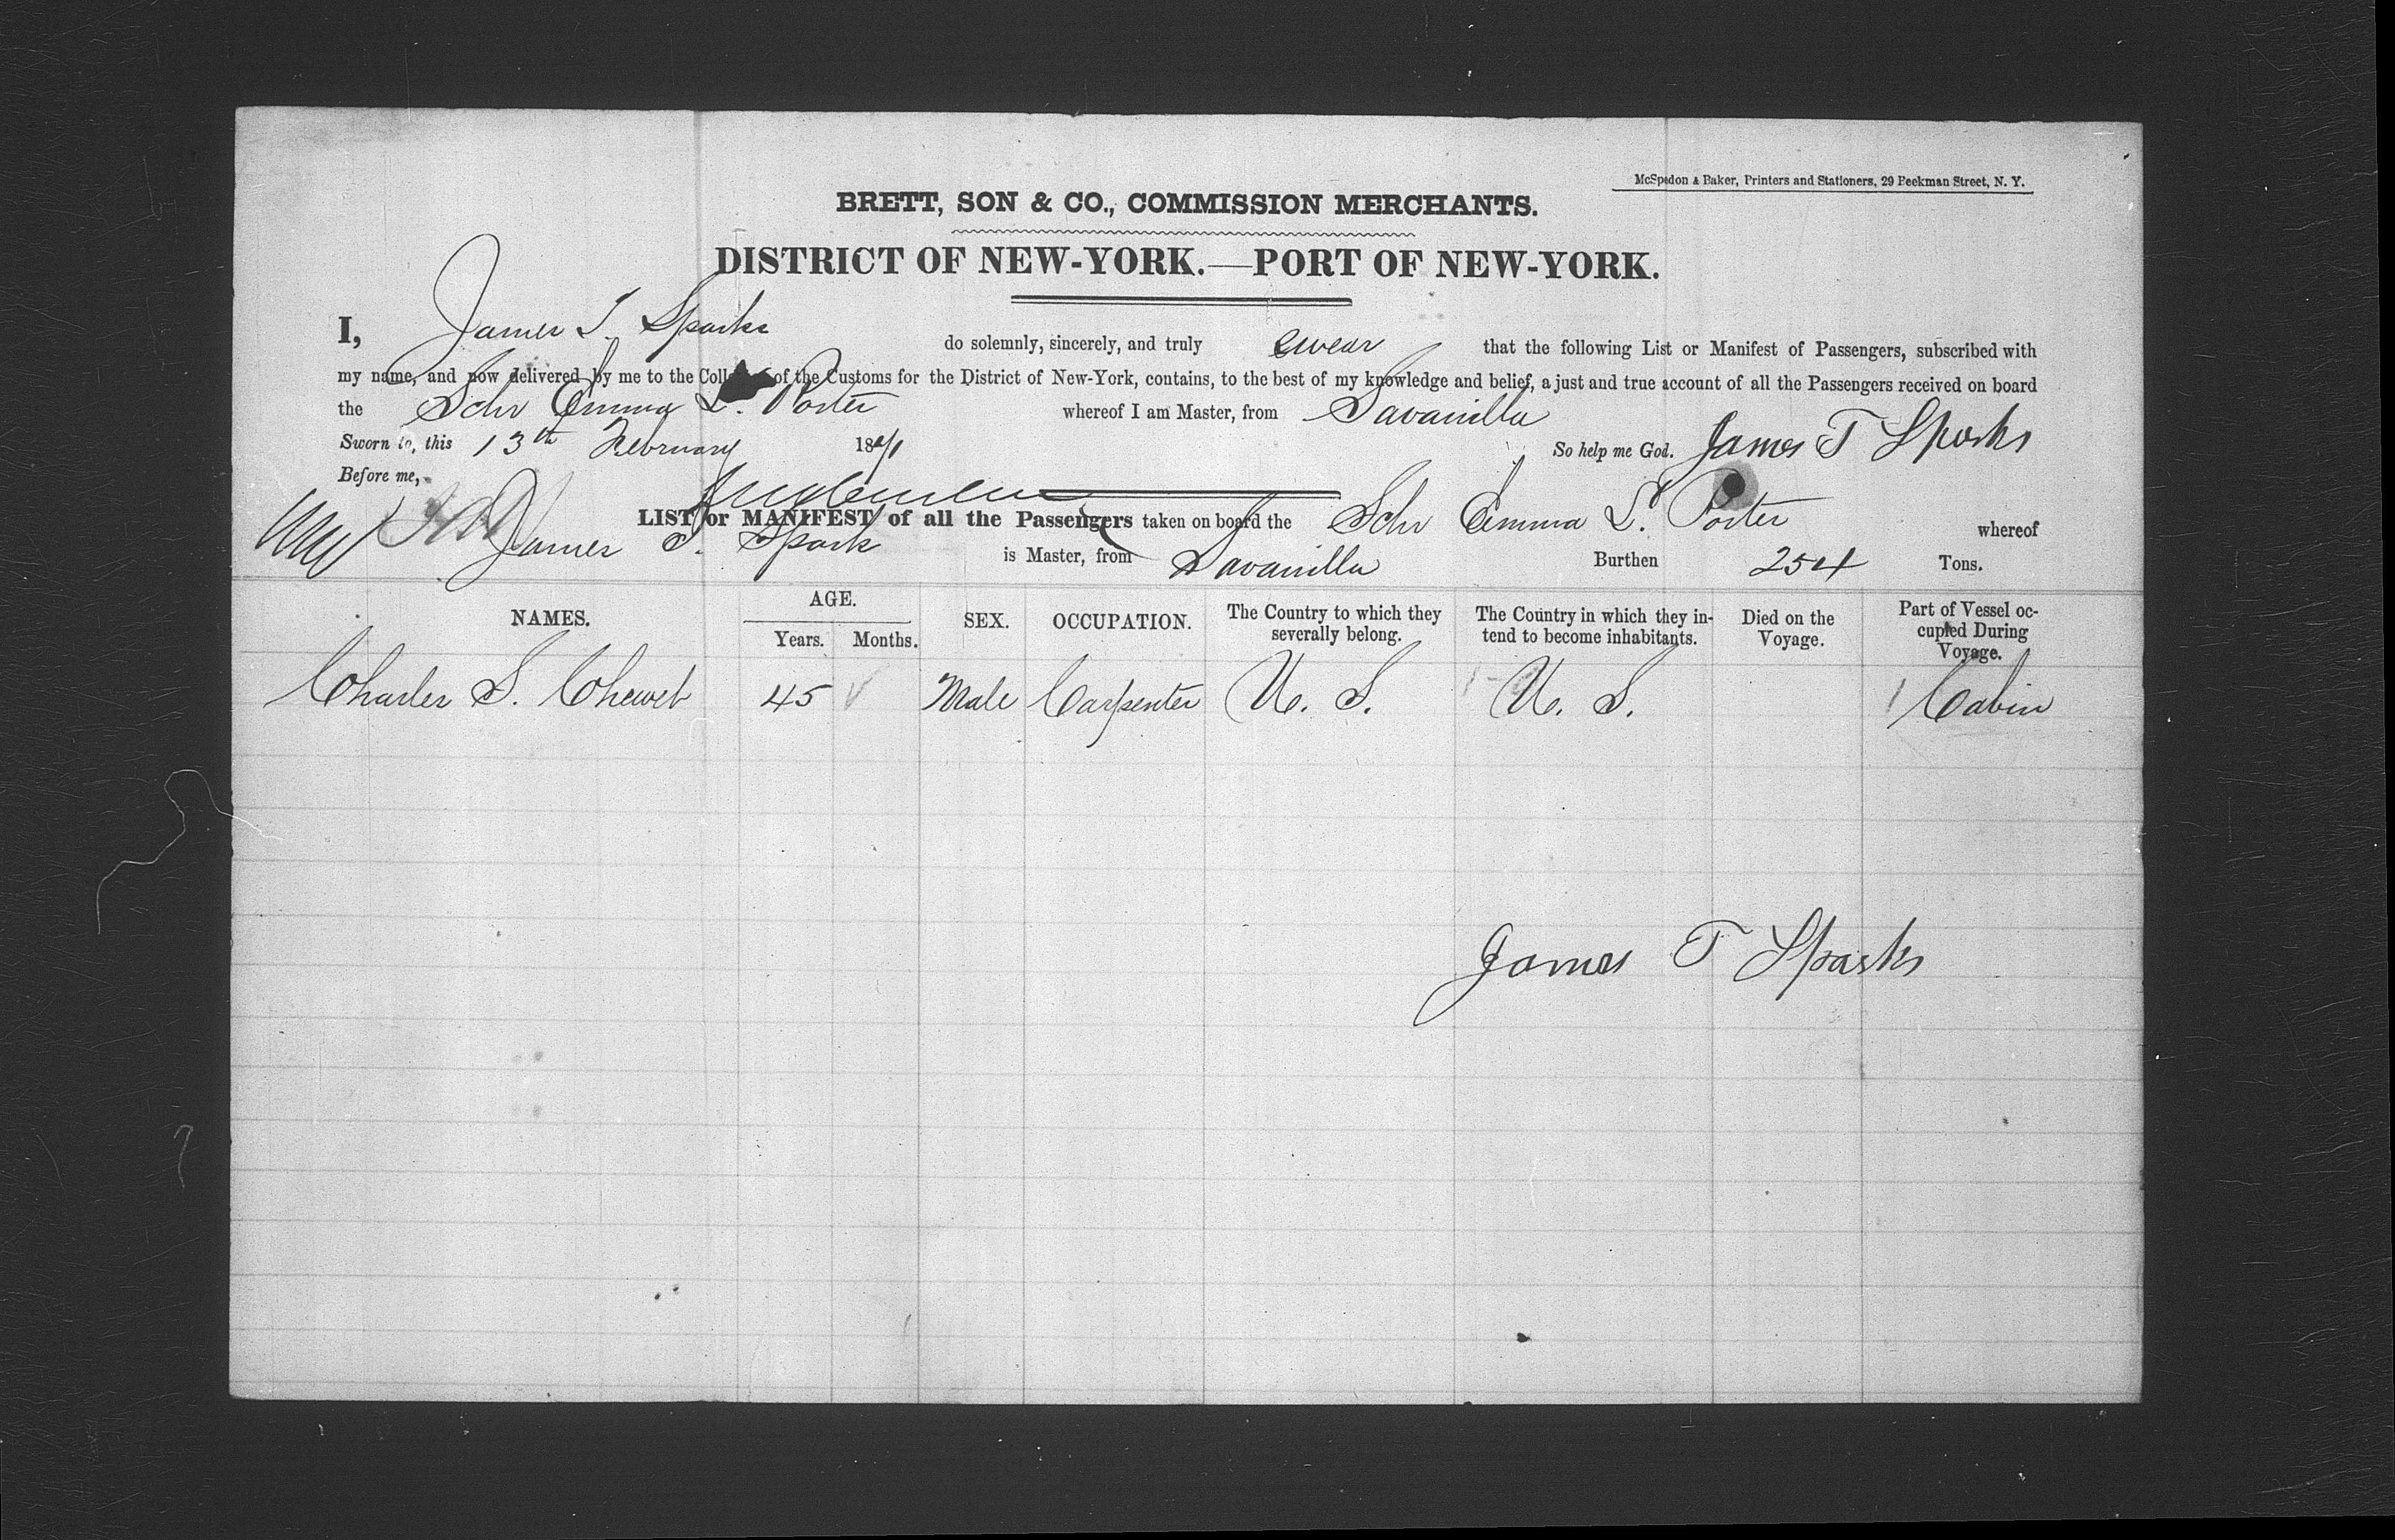 McSpedon & Baker, Printers and Stationers, 29 Beekman Street, N. Y.
BRETT, SON & CO., COMMISSION MERCHANTS.
DISTRICT OF NEW-YORK.—PORT OF NEW-YORK.
I, James T. Sparks do solemnly, sincerely, and truly swear that the following List or Manifest of Passengers, subscribed with
my name, and now delivered by me to the Coll of the Customs for the District of New-York, contains, to the best of my knowledge and belief, a just and true account of all the Passengers received on board
the Schr Emma L. Porter whereof I am Master, from Savanilla
Sworn to, this 13th February 18 So help me God. James T Sparks
Before me,
LIST or MANIFEST of all the Passengers taken on board the Schr Emma L. Porter whereof
James T. Spark is Master, from Savanilla Burthen 254 Tons.
NAMES. AGE. Years. Months. SEX. OCCUPATION. The Country to which they severally belong. The Country in which they intend to become inhabitants. Died on the Voyage. Part of Vessel occupied During Voyage.
Charles S. 45 Male Carpenter U. S. U. S. Cabin
James T Sparks